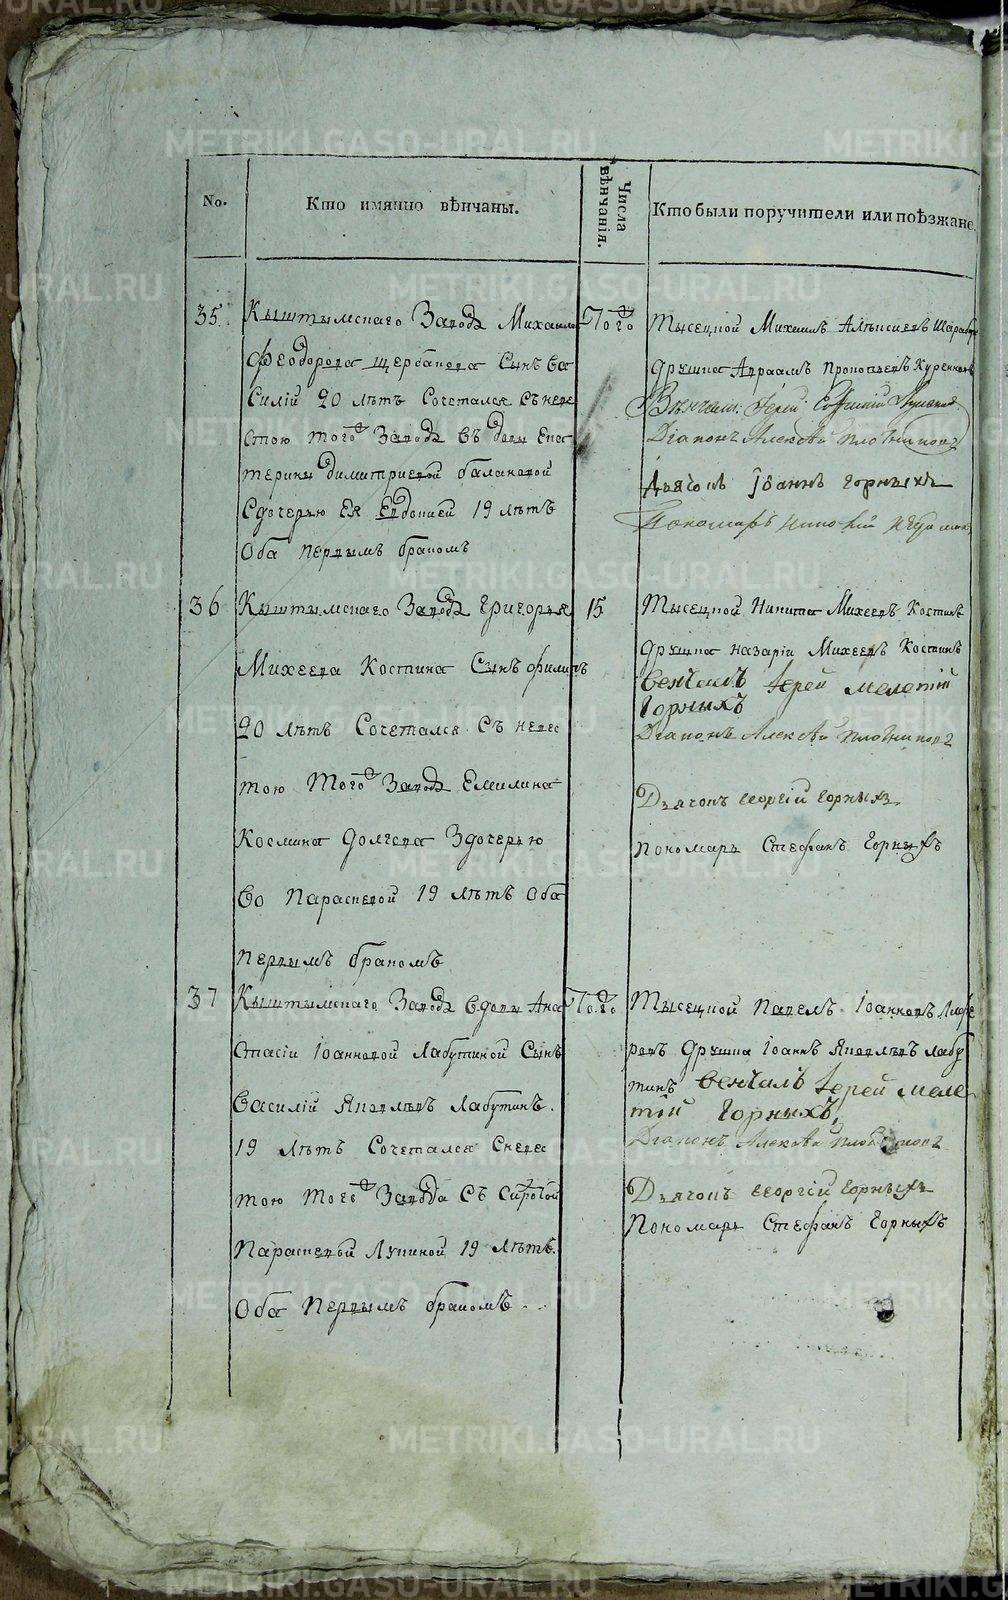 No.
Кто имянно вѣнчаны.
Числа вѣнчанія.
Кто были поручители или поѣзжане.
35.
Кыштымскаго Завода Михаила
Феодорова щербакова Сынъ Ва
силій 20 лѣтъ Сочетался Съ неве
стою того Завода Въдовы Ека
терины Димитриевой балановой
Сдочерью Ея Евдокией 19 лѣтъ
Оба первымъ бракомъ
Того
Тысецкой Михаилъ
дружка Авраамъ Прокопьевъ
Вѣнчалъ Іерей
Діаконъ Алексѣй Плотниковъ
Дьячокъ Іоаннъ Горныхъ
Пономарь
36
Кыштымскаго Завода Григорья
Михеева Костина Сынъ филипъ
20 лѣтъ Сочетался Съ невес
тою Того Завода Емилиана
Космина Долгова Здочерью
Ево Параскевой 19 лѣтъ Оба
первымъ бракомъ
15
Тысецкой Никита Михеевъ Костинъ
дружка назарій Михеевъ Костинъ
венчалъ Іерей мелетій
Горныхъ
Діаконъ Алексѣй Плотниковъ
Дьячокъ Георгій Горныхъ
Пономарь Стефанъ Горныхъ
37
Кыштымскаго Завода Вдовы Ана
стасіи Іоанновой Лабутиной Сынъ
Василій Яковлевъ Лабутинъ.
19 лѣтъ Сочетался Сневес
тою Того Завода Съ Сиротой
Параскевой Лукиной 19 лѣтъ
Оба Первымъ бракомъ
Того
Тысецкой Павелъ Іоанновъ
дружка Іоаннъ Яковлевъ лабу
тинъ венчалъ Іерей меле
тій Горныхъ,
Діаконъ Алексѣй Плотниковъ
Дьячокъ Георгій Горныхъ
Пономарь Стефанъ Горныхъ
METRIKI.GASO-URAL.RU